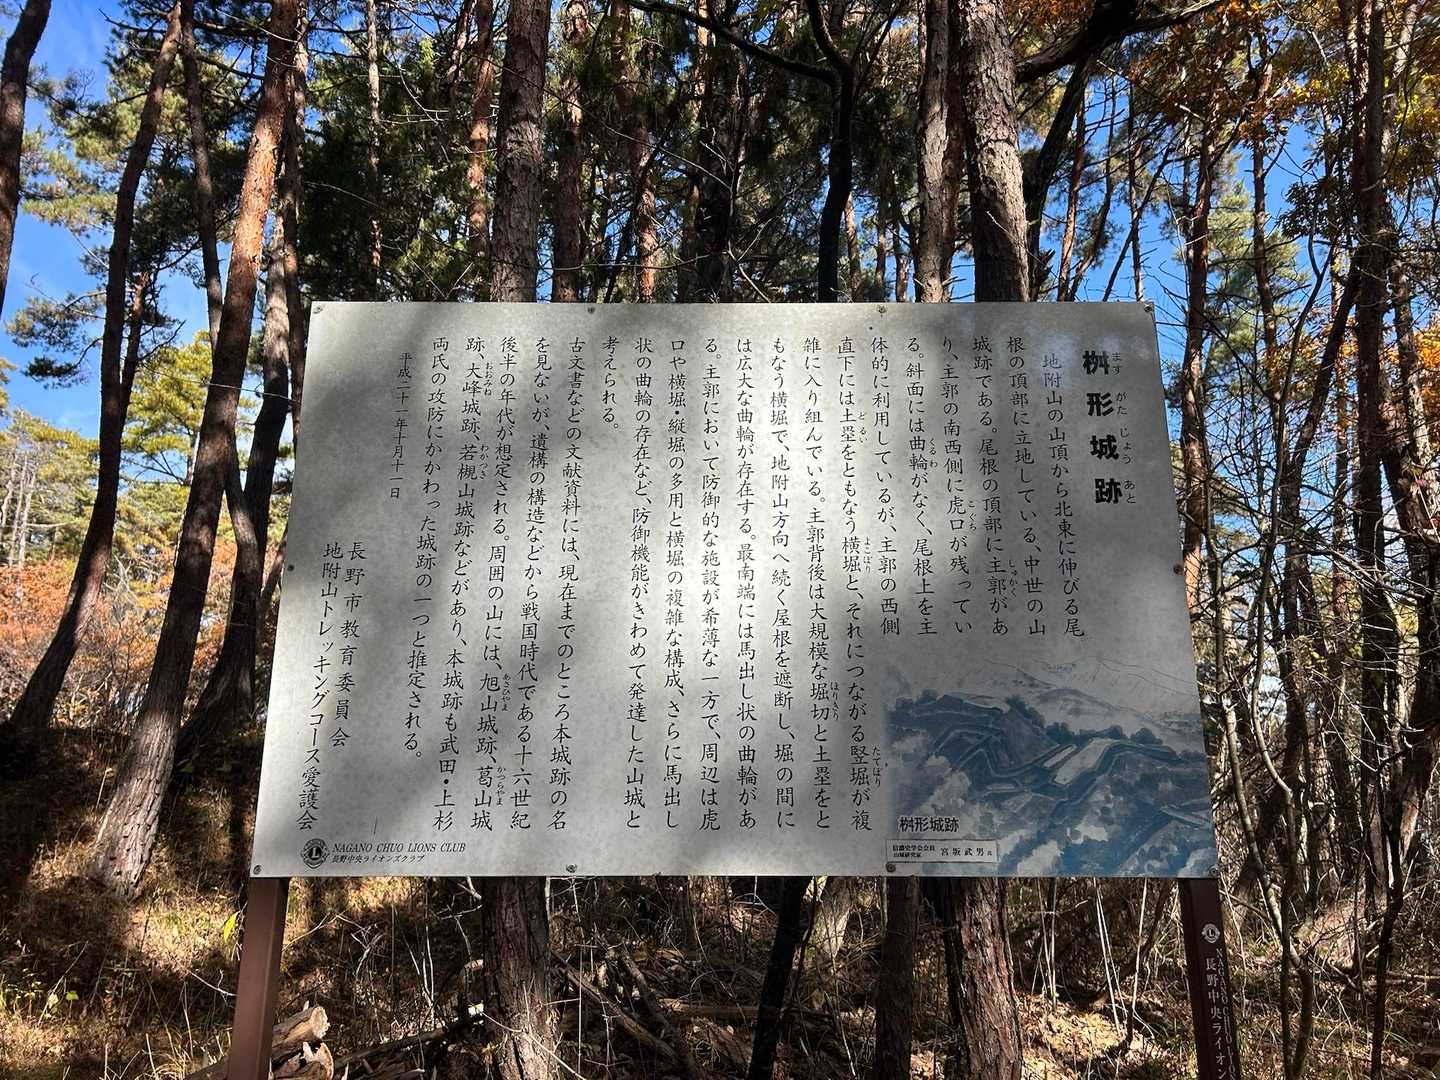 桝形城跡
ます がた じょう あと
地附山の山頂から北東に伸びる尾
根の頂部に立地している、中世の山
城跡である。尾根の頂部に主郭があ
しゅかく
り、主郭の南西側に虎口が残ってい
こぐち
る。斜面には曲輪がなく、尾根上を主
くるわ
体的に利用しているが、主郭の西側
直下には土塁をともなう横堀と、それにつながる竪堀が複
どるい よこぼり たてぼり
雑に入り組んでいる。主郭背後は大規模な堀切と土塁をと
ほりきり
もなう横堀で、地附山方向へ続く屋根を遮断し、堀の間に
は広大な曲輪が存在する。最南端には馬出し状の曲輪があ
る。主郭において防御的な施設が希薄な一方で、周辺は虎
口や横堀・縦堀の多用と横堀の複雑な構成、さらに馬出し
状の曲輪の存在など、防御機能がきわめて発達した山城と
考えられる。
古文書などの文献資料には、現在までのところ本城跡の名
を見ないが、遺構の構造などから戦国時代である十六世紀
後半の年代が想定される。周囲の山には、旭山城跡、葛山城
あさひやま かつらやま
跡、大峰城跡、若槻山城跡などがあり、本城跡も武田・上杉
おおみね わかつき
両氏の攻防にかかわった城跡の一つと推定される。
平成二十一年十月十一日
長野市教育委員会
地附山トレッキングコース愛護会
NAGANO CHUO LIONS CLUB
長野中央ライオンズクラブ
桝形城跡
信濃史学会会員
山城研究家
宮坂武男氏
NAGANO CHUO
長野中央ライオン